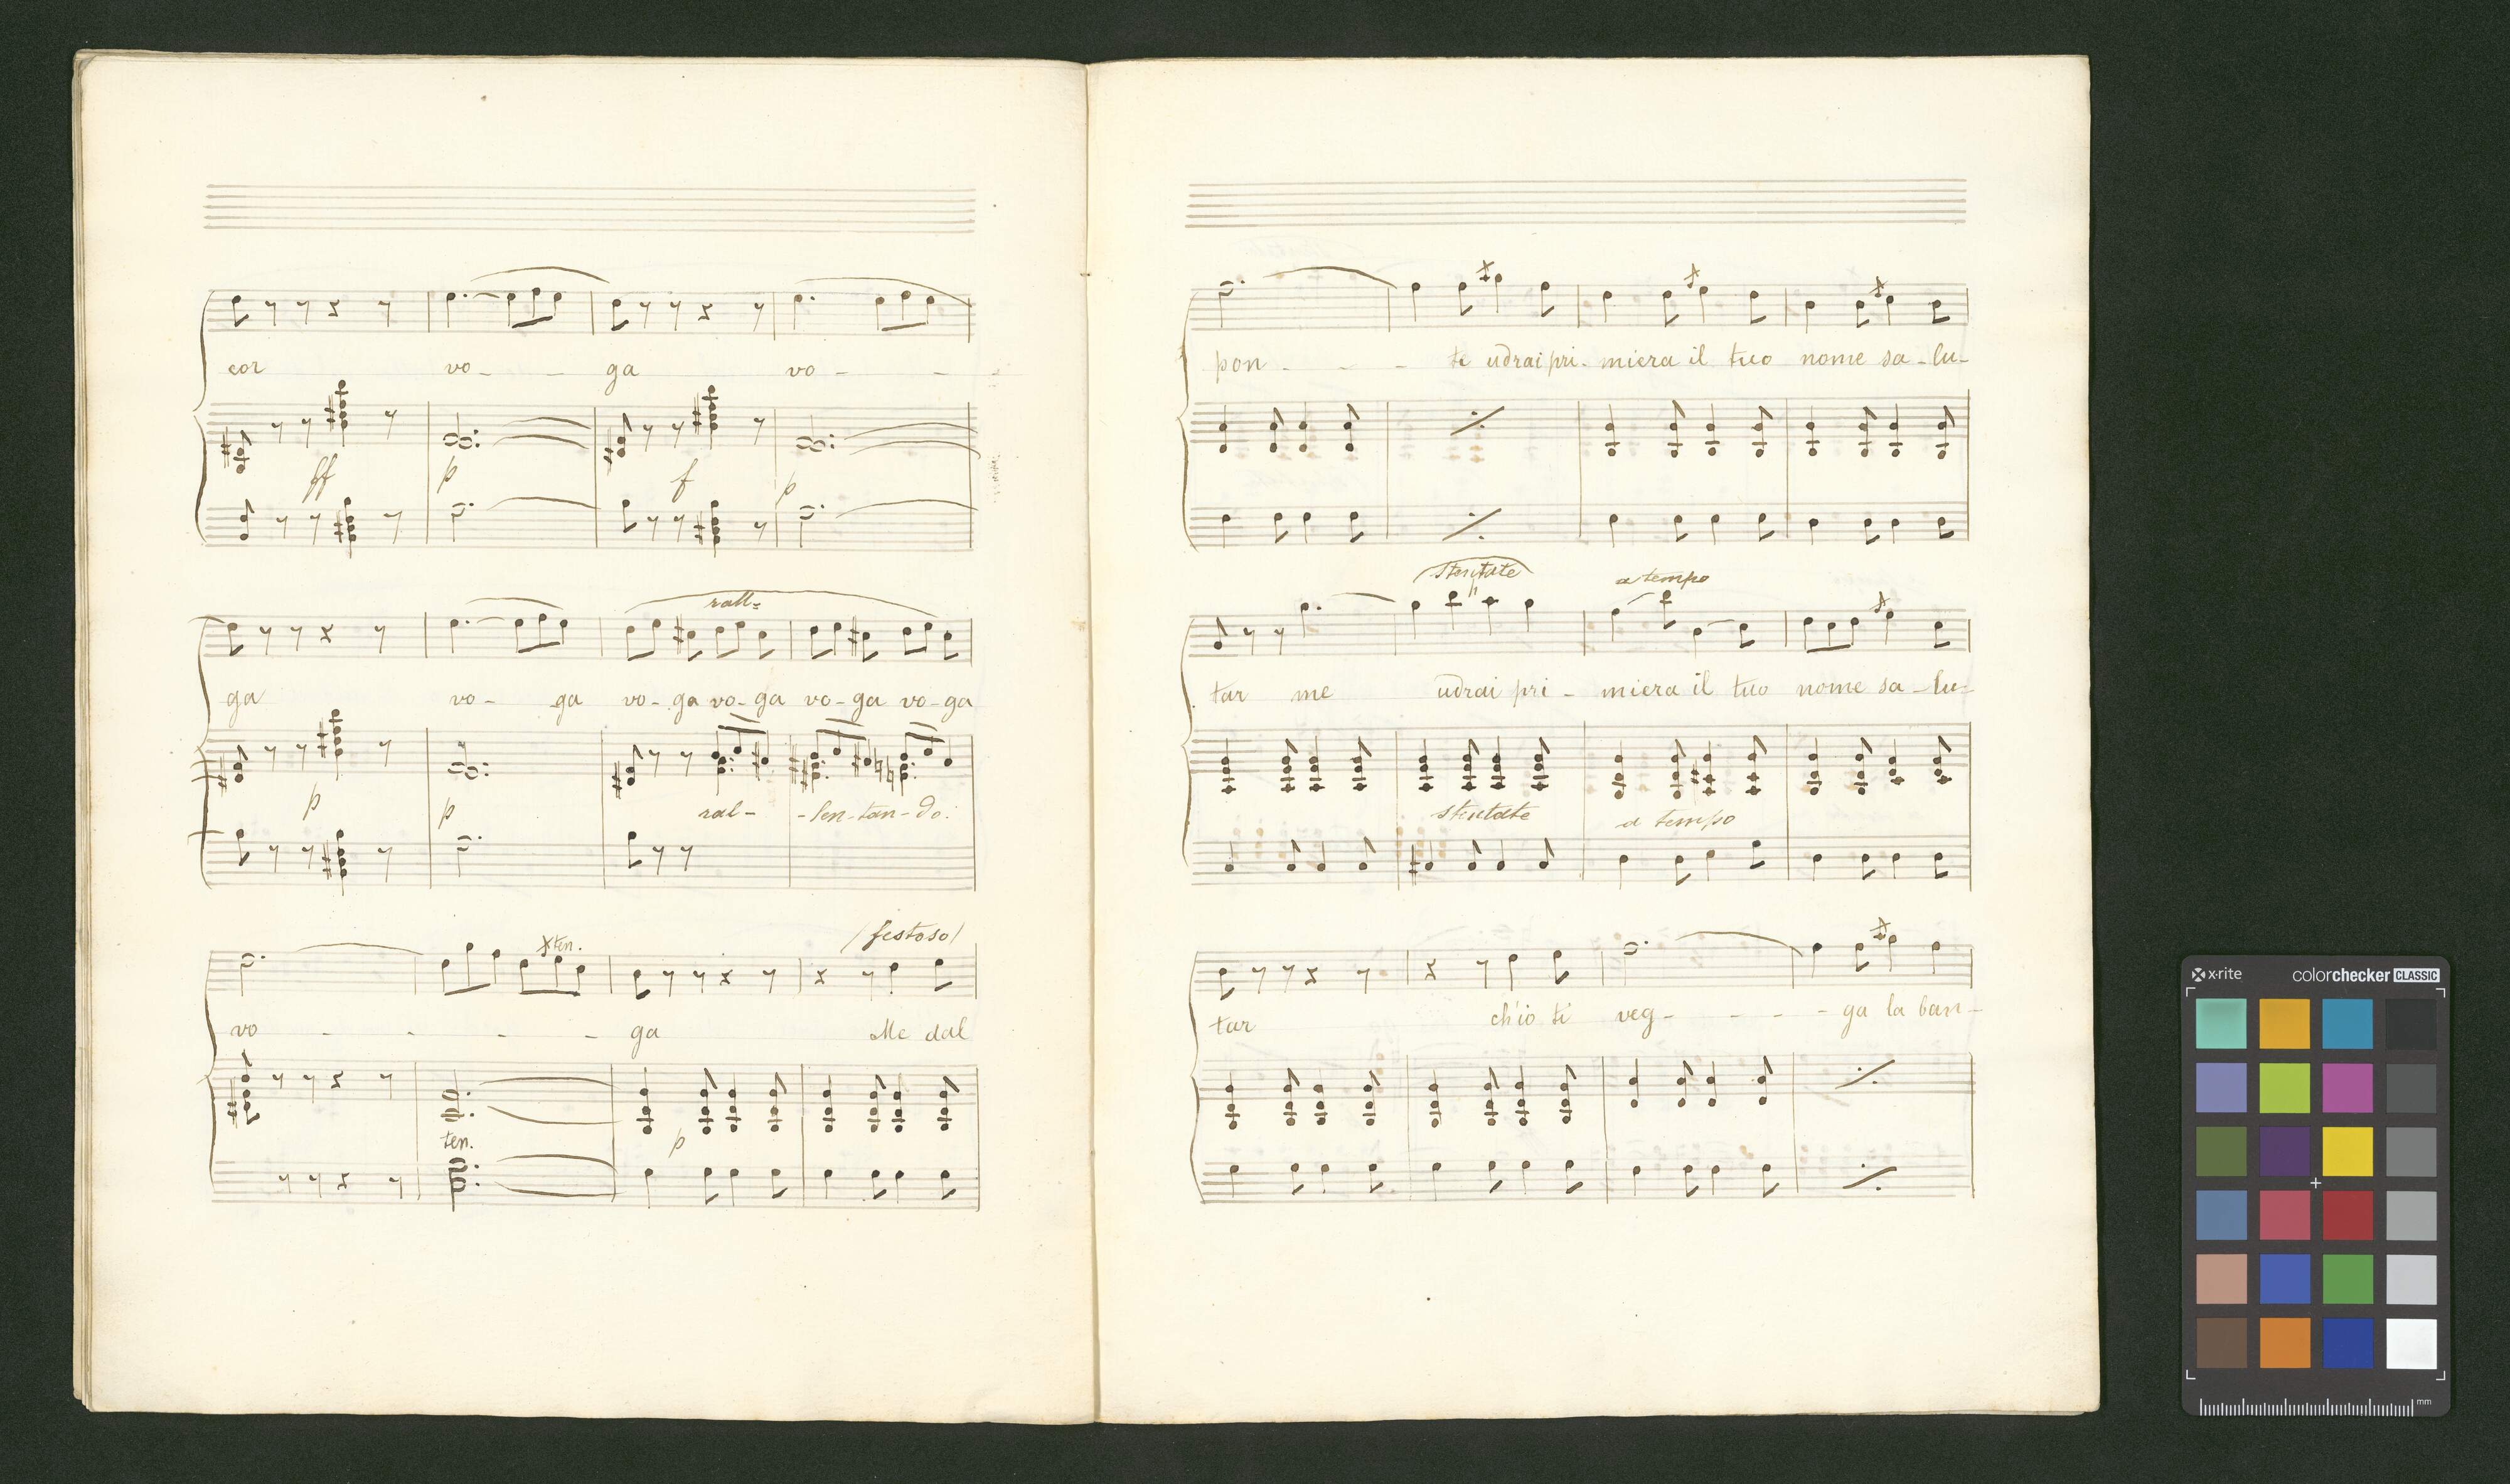 cor vo - - ga vo - -
ff p f p
rall:
ga vo - ga vo - ga vo - ga vo - ga vo - ga
p p ral - - len - tan - do.
ten. / festoso /
vo - - - - ga Me dal
ten. p
pon - - - te udrai pri - miera il tuo nome sa - lu -
stentate a tempo
tar me udrai pri - miera il tuo nome sa - lu -
stentate a tempo
tar ch'io ti veg - - - - ga la ban -
x-rite colorchecker CLASSIC
mm